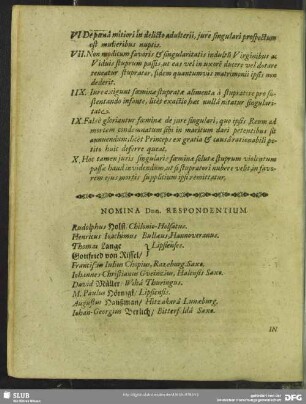 VI. De pœnâ mitiori in delicto adulterii, jure singulari prospectum
est mulieribus nuptis.
VII. Non modicum favoris & singularitatis indulsit Virginibus ac
Viduis stuprum passis, ut eas vel in uxorē ducere vel dotare
teneatur stuprator, sidem quantumvis matrimonii ipsis non
dederit.
IIX. Jure exigunt fœminæ stupratæ alimenta à stupratore pro su-
stentando infante, licèt exactio hæc nullâ nitatur singulari-
tate.
IX. Falsò gloriantur fœminæ de jure singulari, quo ipsis Reum ad
mortem condemnatum sibi in maritum dari petentibus sit
annuendum; licèt Princeps ex gratia & considerabilitati pa-
rito huic deferre queat.
X. Hoc tamen juris singularis fœminæ solutæ stuprum violentum
passæ haud invidendum, ut si stupratori nubere velit in favo-
rem ejus mortis supplicium ipsi remittatur.
NOMINA Dnn. RESPONDENTIUM
Rudolphus Holst, Chilonio-Holsatus.
Henricus Joachimus Bulleus, Hannoveranus.
Thomas Lange
Gottfried von Ryssel/ Lipsienses.
Franciscus Julius Chopius, Raneburg. Saxo.
Johannes Christianus Gveinzius, Halensis Saxo.
David Müller/ Thuringus.
M. Paulus Hörnigk/ Lipsiensis.
Augustus Haußman/ Hitzakerâ Luneburg.
Johan-Georgius Berlich/ Bitterf. Saxo.
IN
SLUB
Wir führen Wissen.
http://digital.slub-dresden.de/
gefördert von der
Deutschen Forschungsgemeinschaft
DFG